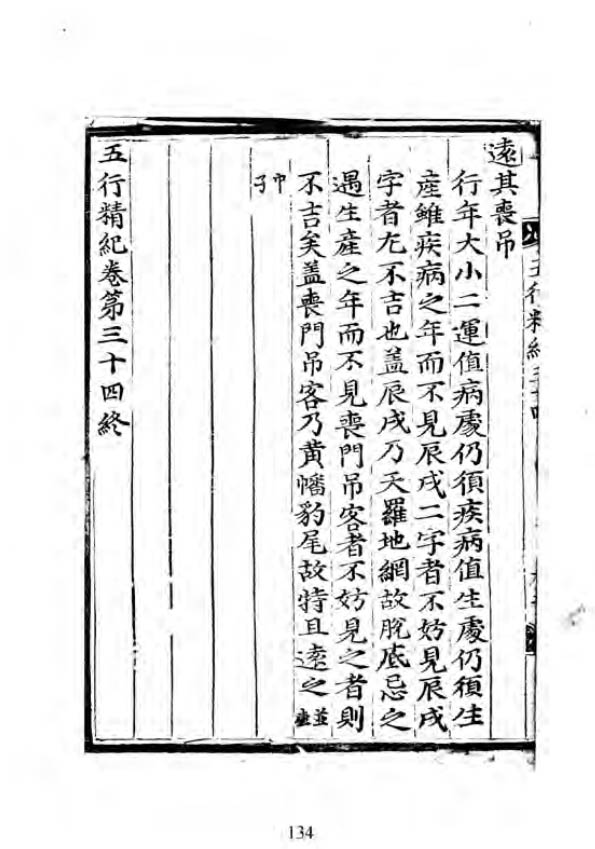 五行精紀三十四
遠其喪吊
行年大小二運值病處仍須疾病值生處仍須生
產雖疾病之年而不見辰戌二字者不妨見辰戌
字者尤不吉也盖辰戌乃天羅地網故脫底忌之
遇生產之年而不見喪門吊客者不妨見之者則
不吉矣盖喪門吊客乃黃幡豹尾故特且遠之並
中子
五行精紀卷第三十四終
134